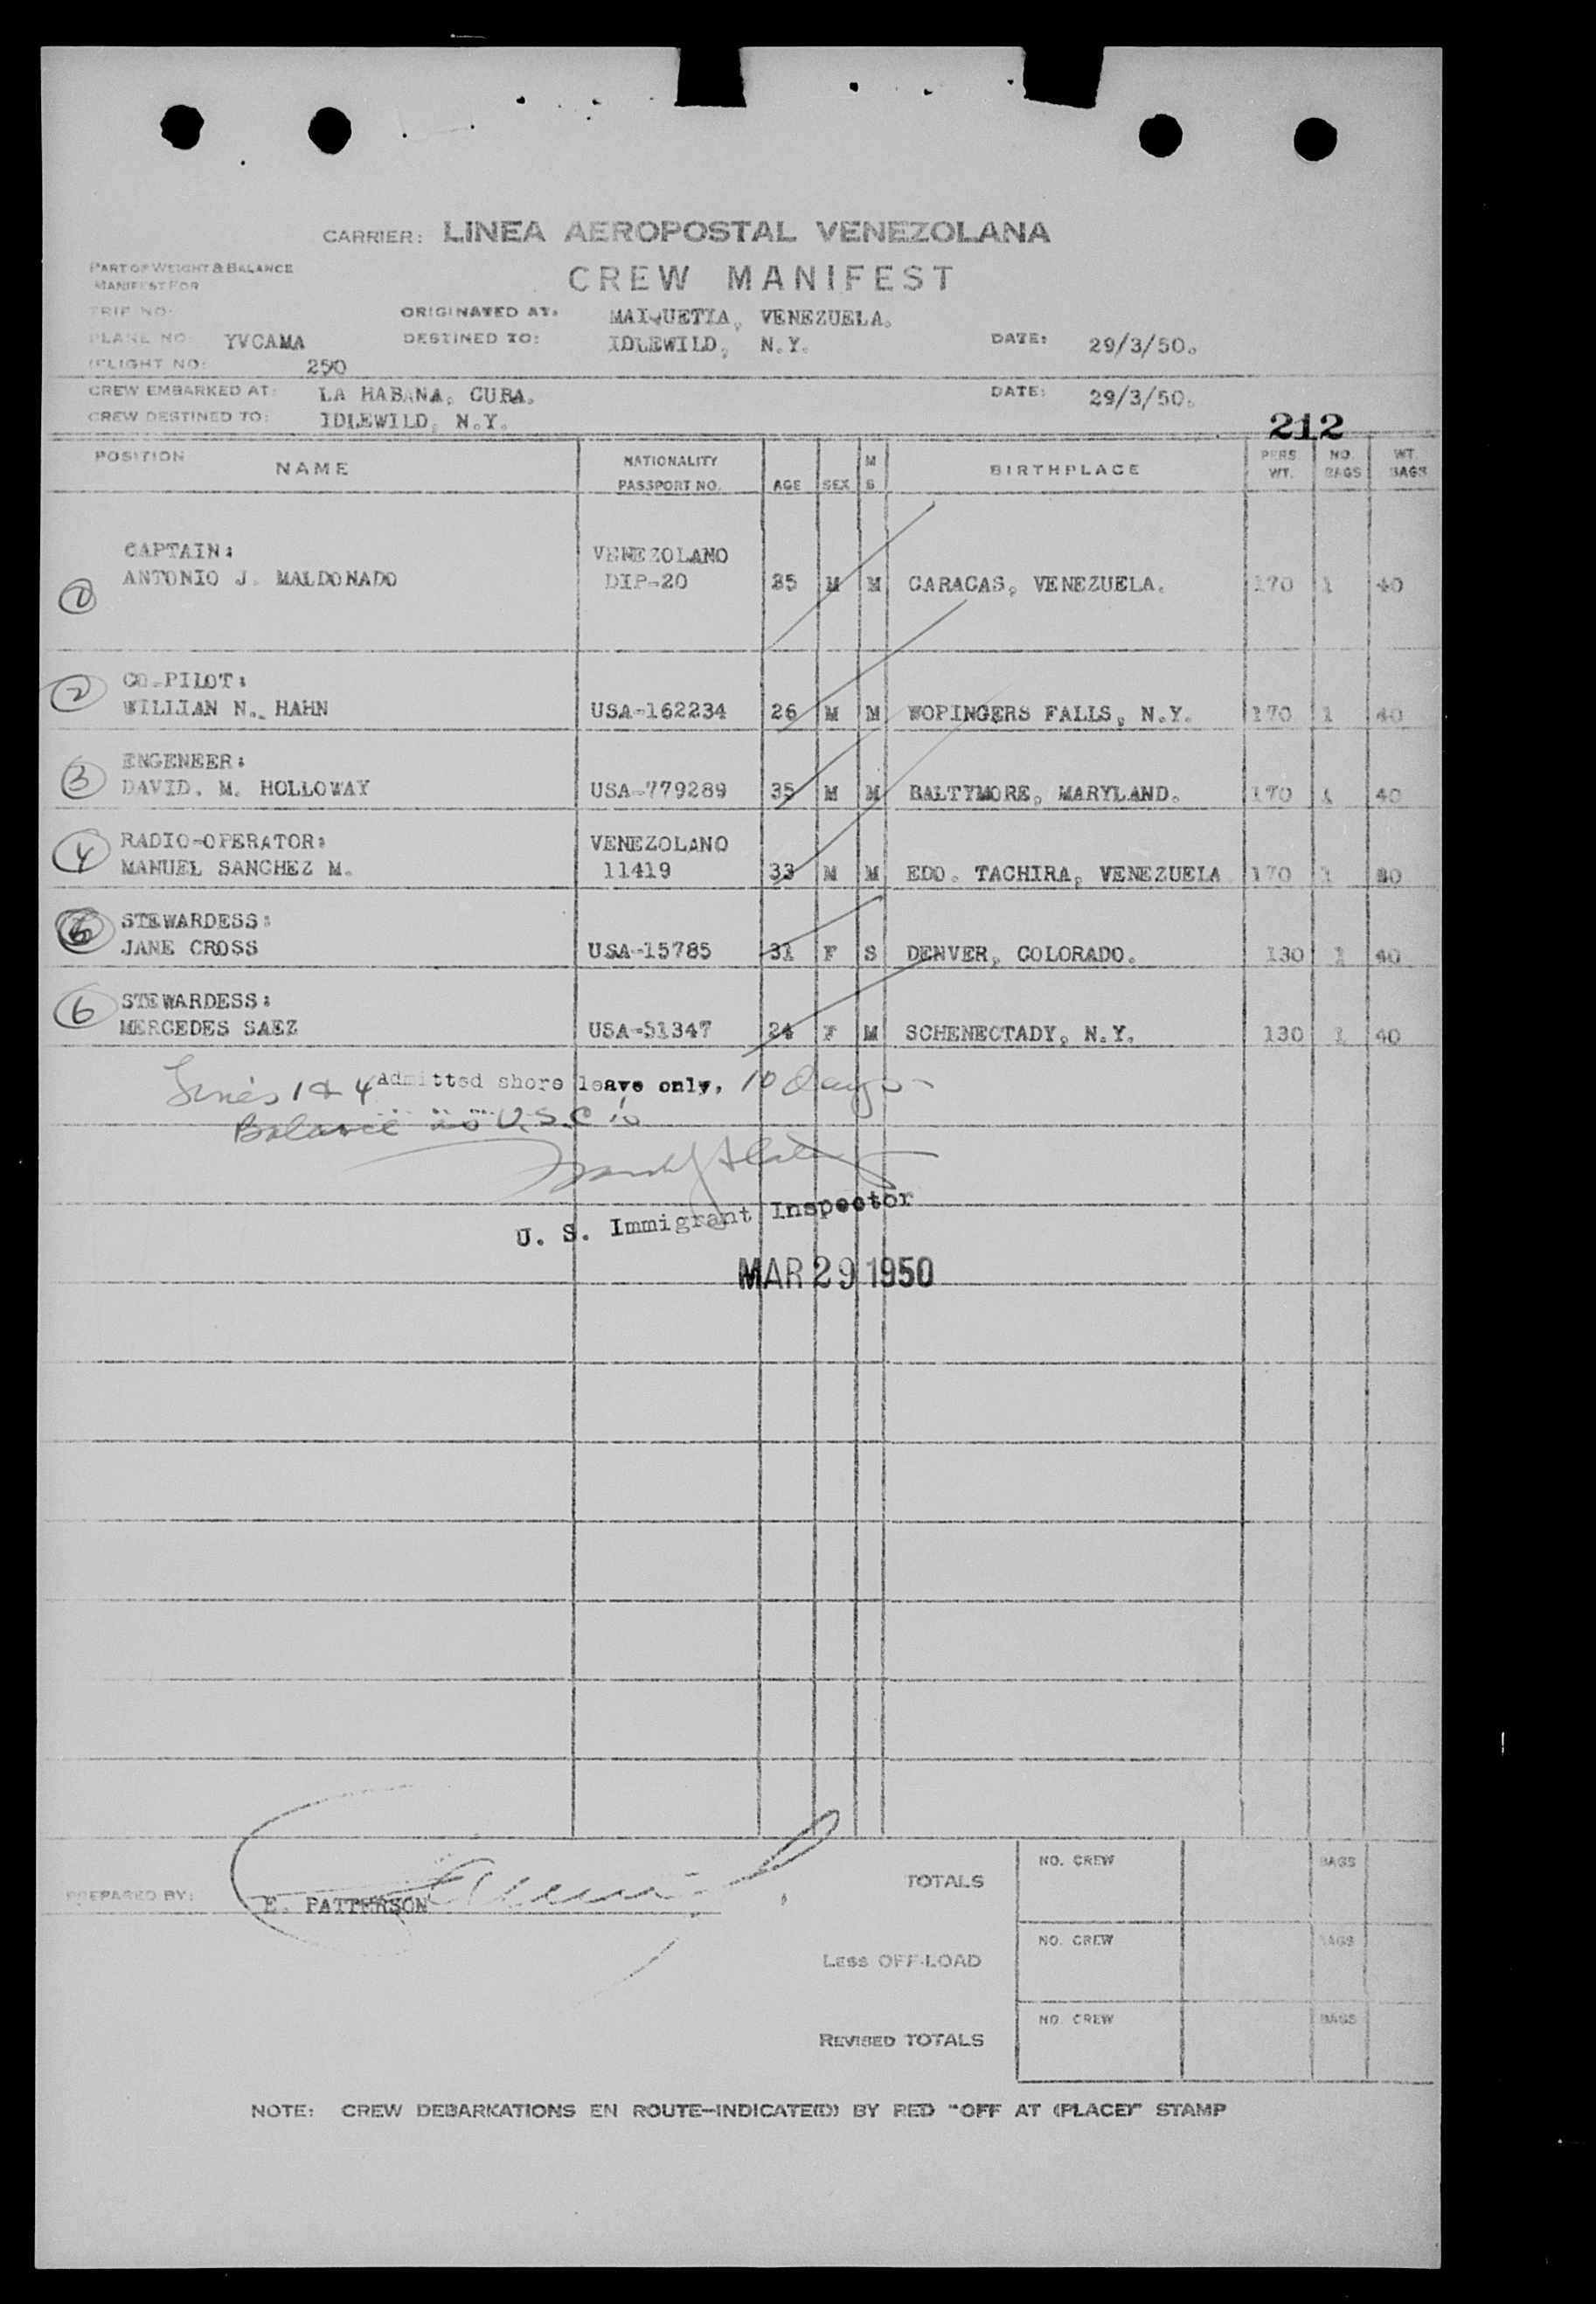 CARRIER: LINEA AEROPOSTAL VENEZOLANA
PART OF WEIGHT & BALANCE
MANIFEST FOR
CREW MANIFEST
TRIP NO.
ORIGINATED AT: MAIQUETIA, VENEZUELA.
PLANE NO. YVCAMA
DESTINED TO: IDLEWILD, N.Y.
DATE: 29/3/50.
FLIGHT NO: 250
CREW EMBARKED AT: LA HABANA, CUBA.
DATE: 29/3/50.
CREW DESTINED TO: IDLEWILD, N.Y.
212
POSITION NAME NATIONALITY PASSPORT NO. AGE SEX M S BIRTHPLACE PERS WT. NO. BAGS WT. BAGS
CAPTAIN: VENEZOLANO
1 ANTONIO J. MALDONADO DIP-20 35 M M CARACAS, VENEZUELA. 170 1 40
2 CO-PILOT:
WILLIAN N. HAHN USA-162234 26 M M WOPINGERS FALLS, N.Y. 170 1 40
3 ENGENEER:
DAVID. M. HOLLOWAY USA-779289 35 M M BALTYMORE, MARYLAND. 170 1 40
4 RADIO-OPERATOR: VENEZOLANO
MANUEL SANCHEZ M. 11419 33 M M EDO. TACHIRA, VENEZUELA 170 1
STEWARDESS:
JANE CROSS USA-15785 31 F S DENVER, COLORADO. 130 1 40
6 STEWARDESS:
MERCEDES SAEZ USA-51347 24 F M SCHENECTADY, N.Y. 130 1 40
Lines 1 & 4 Admitted shore leave only, 10 days
Balance U.S.C's
U. S. Immigrant Inspector
MAR 29 1950
PREPARED BY: E. PATTERSON
TOTALS NO. CREW BAGS
Less OFF-LOAD NO. CREW BAGS
REVISED TOTALS NO. CREW BAGS
NOTE: CREW DEBARKATIONS EN ROUTE—INDICATE(D) BY RED "OFF AT (PLACE)" STAMP